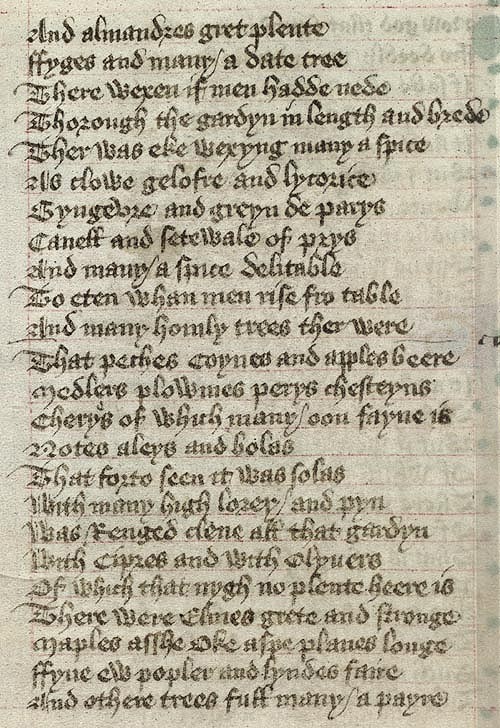 And almandres gret plente
ffyges and many a date tree
There wexen if men hadde nede
Thorough the gardyn in length and brede
Ther was eke wexyng many a spice
As clowe gelofre and lycorice
Gyngevre and greyn de parys
Canell and setewale of prys
And many a spice delitable
To eten whan men rise fro table
And many homly trees ther were
That peches coynes and apples beere
Medlers plowmes perys chesteyns
Cherys of which many oon fayne is
Notes aleys and bolas
That forto seen it was solas
With many high lorey and pyn
Was Renged clene all that gardyn
With Cipres and with Olyuers
Of which that nygh no plente heere is
There were Elmes grete and stronge
Maples asshe Oke aspe planes longe
ffyne ew popler and lyndes faire
And othere trees full many a payre